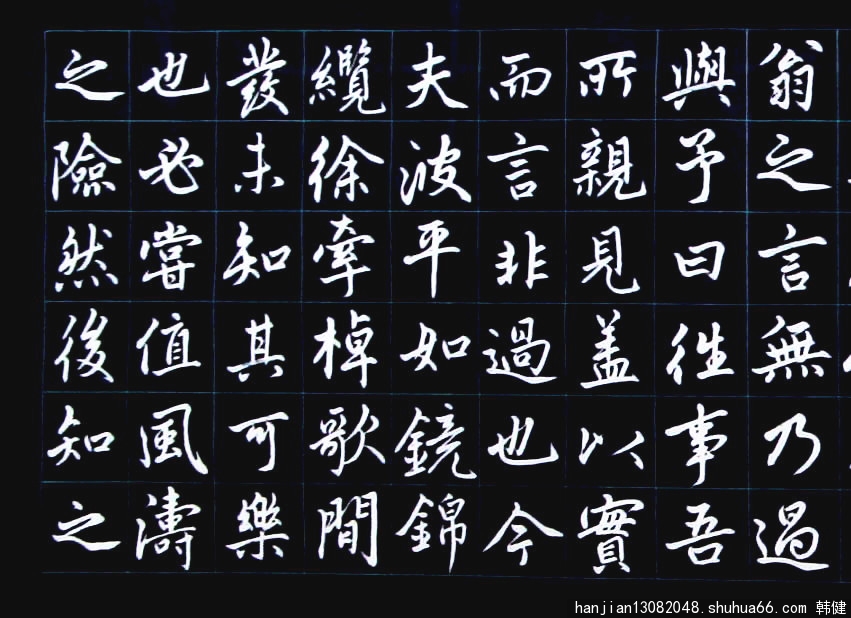 翁之言無乃過
與予曰往事吾
所親見盖以實
而言非過也今
夫波平如鏡錦
纜徐牽棹歌間
發未知其可樂
也必嘗值風濤
之險然後知之
hanjian13082048.shuhua66.com 韩健